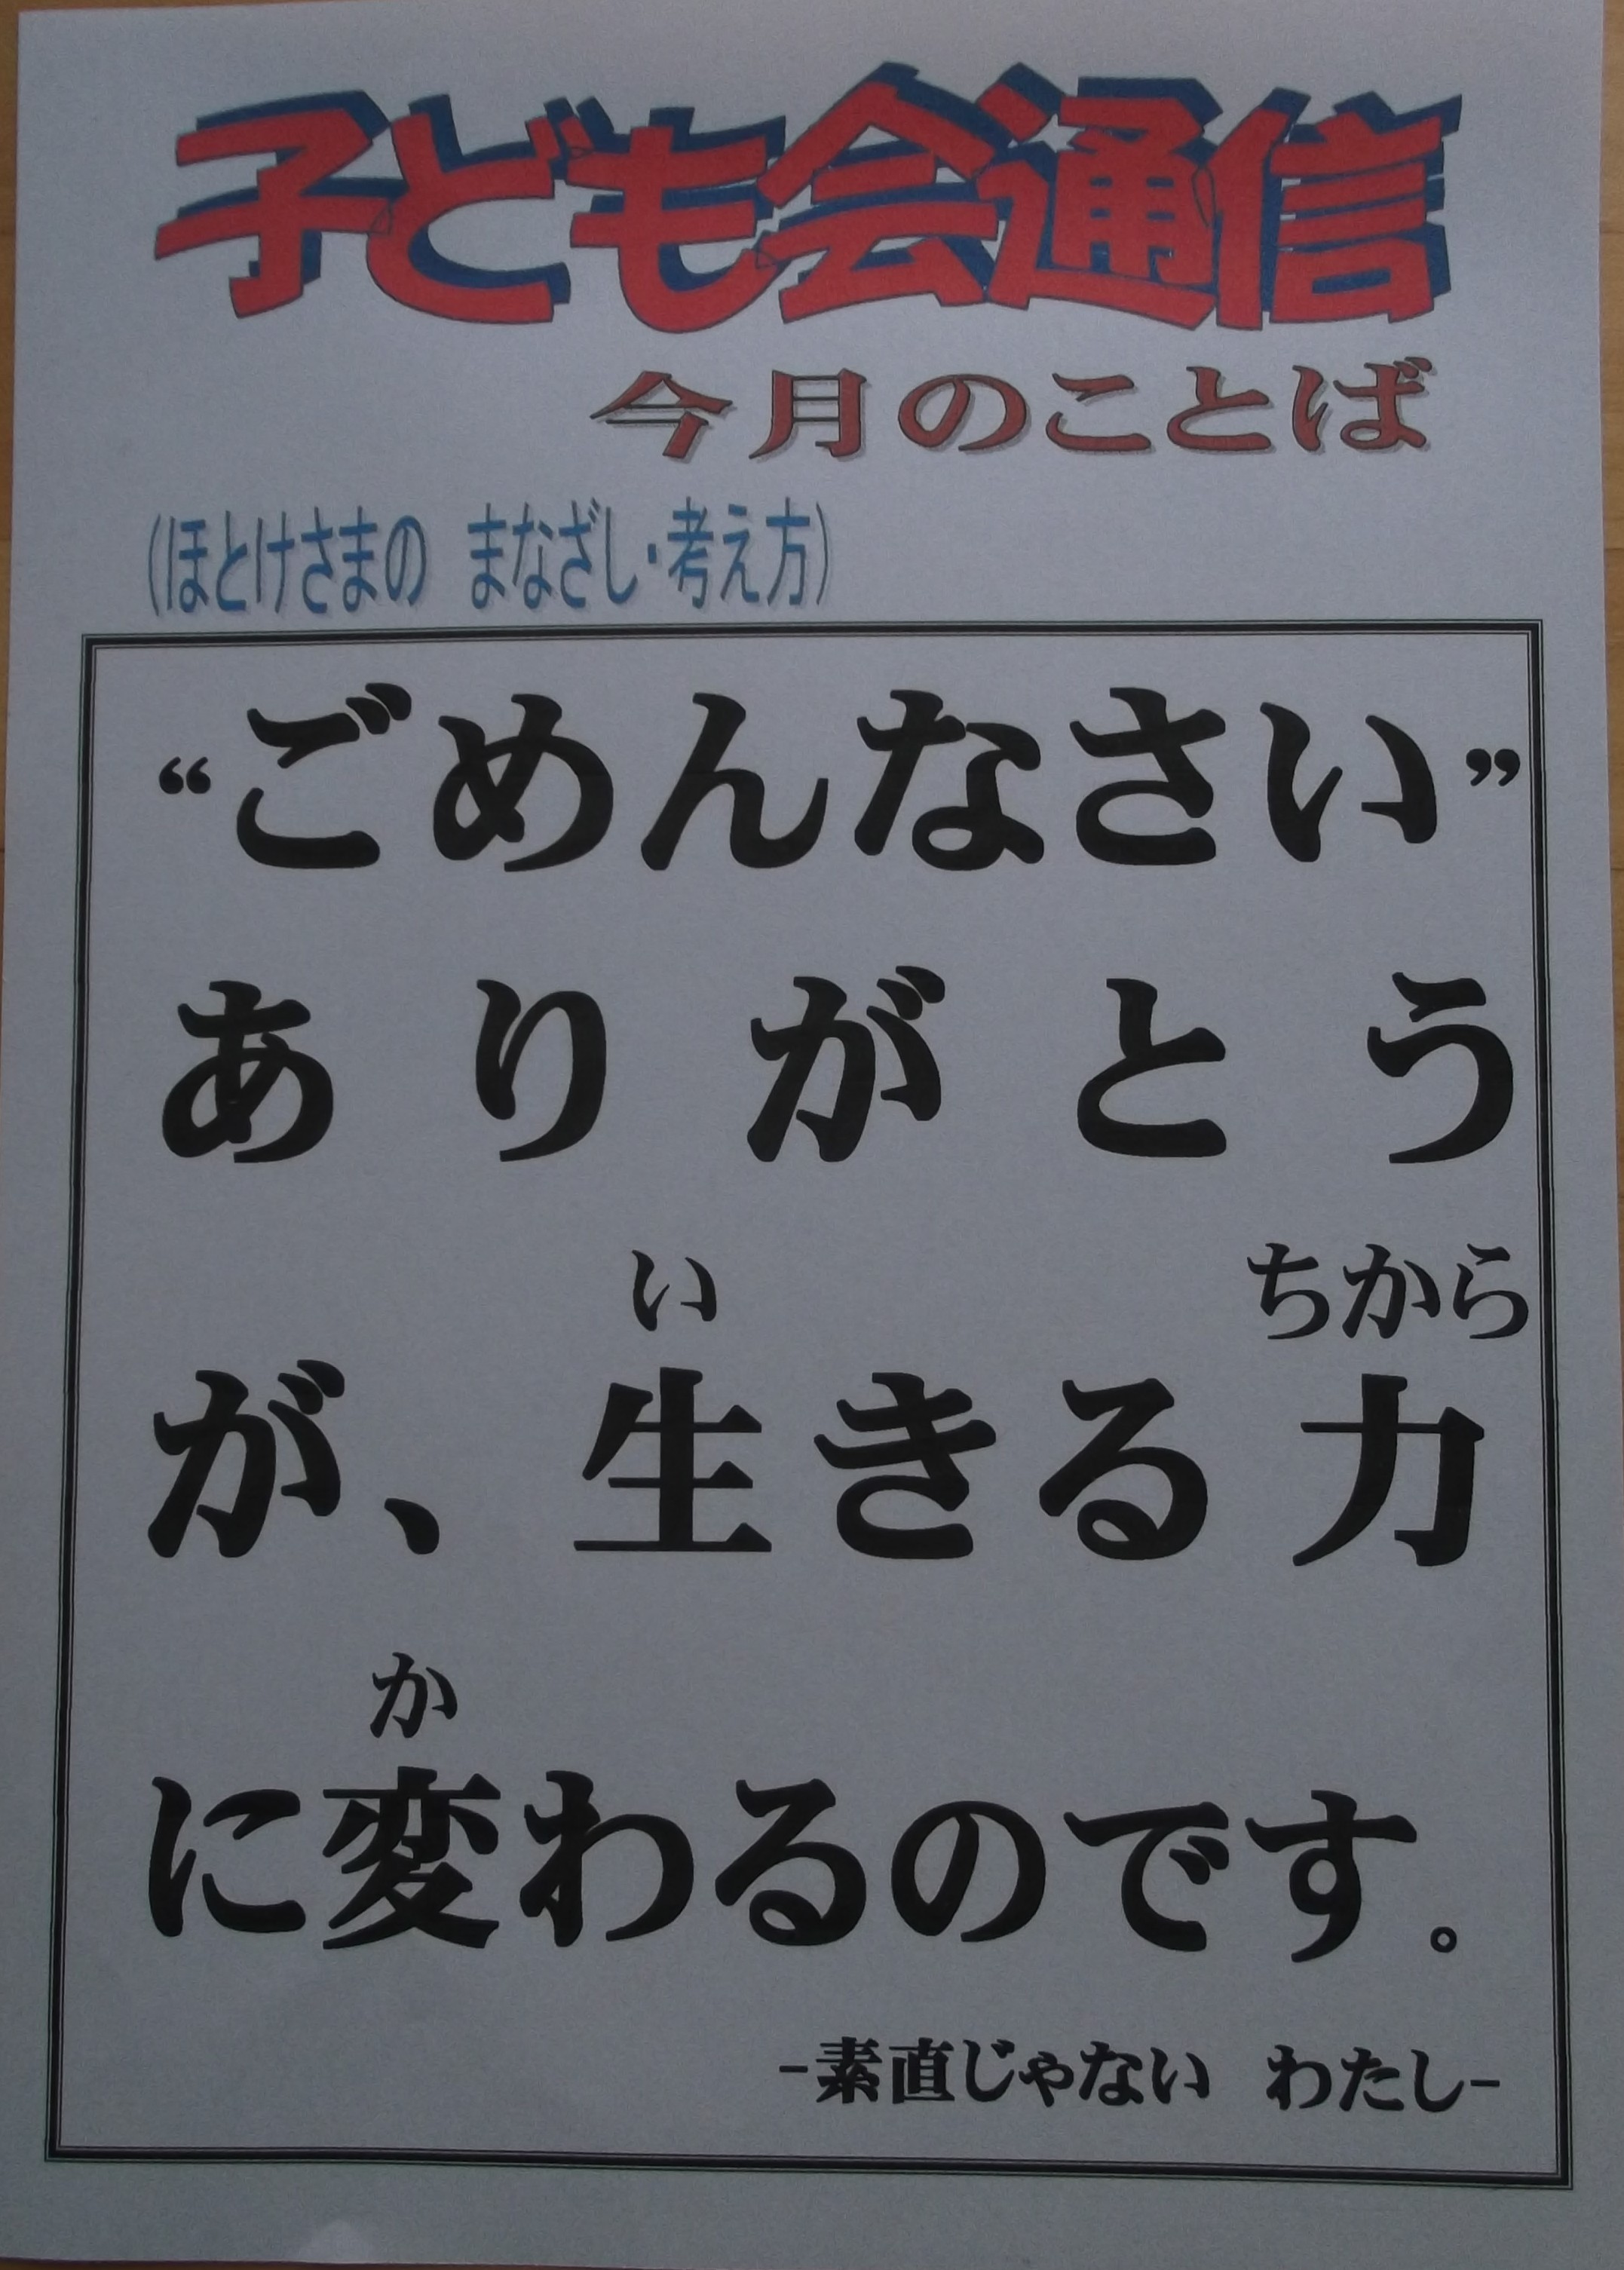 子ども会通信
今月のことば
(ほとけさまの　まなざし・考え方)
“ごめんなさい”
ありがとう
い　ちから
が、生きる力
か
に変わるのです。
-素直じゃない　わたし-